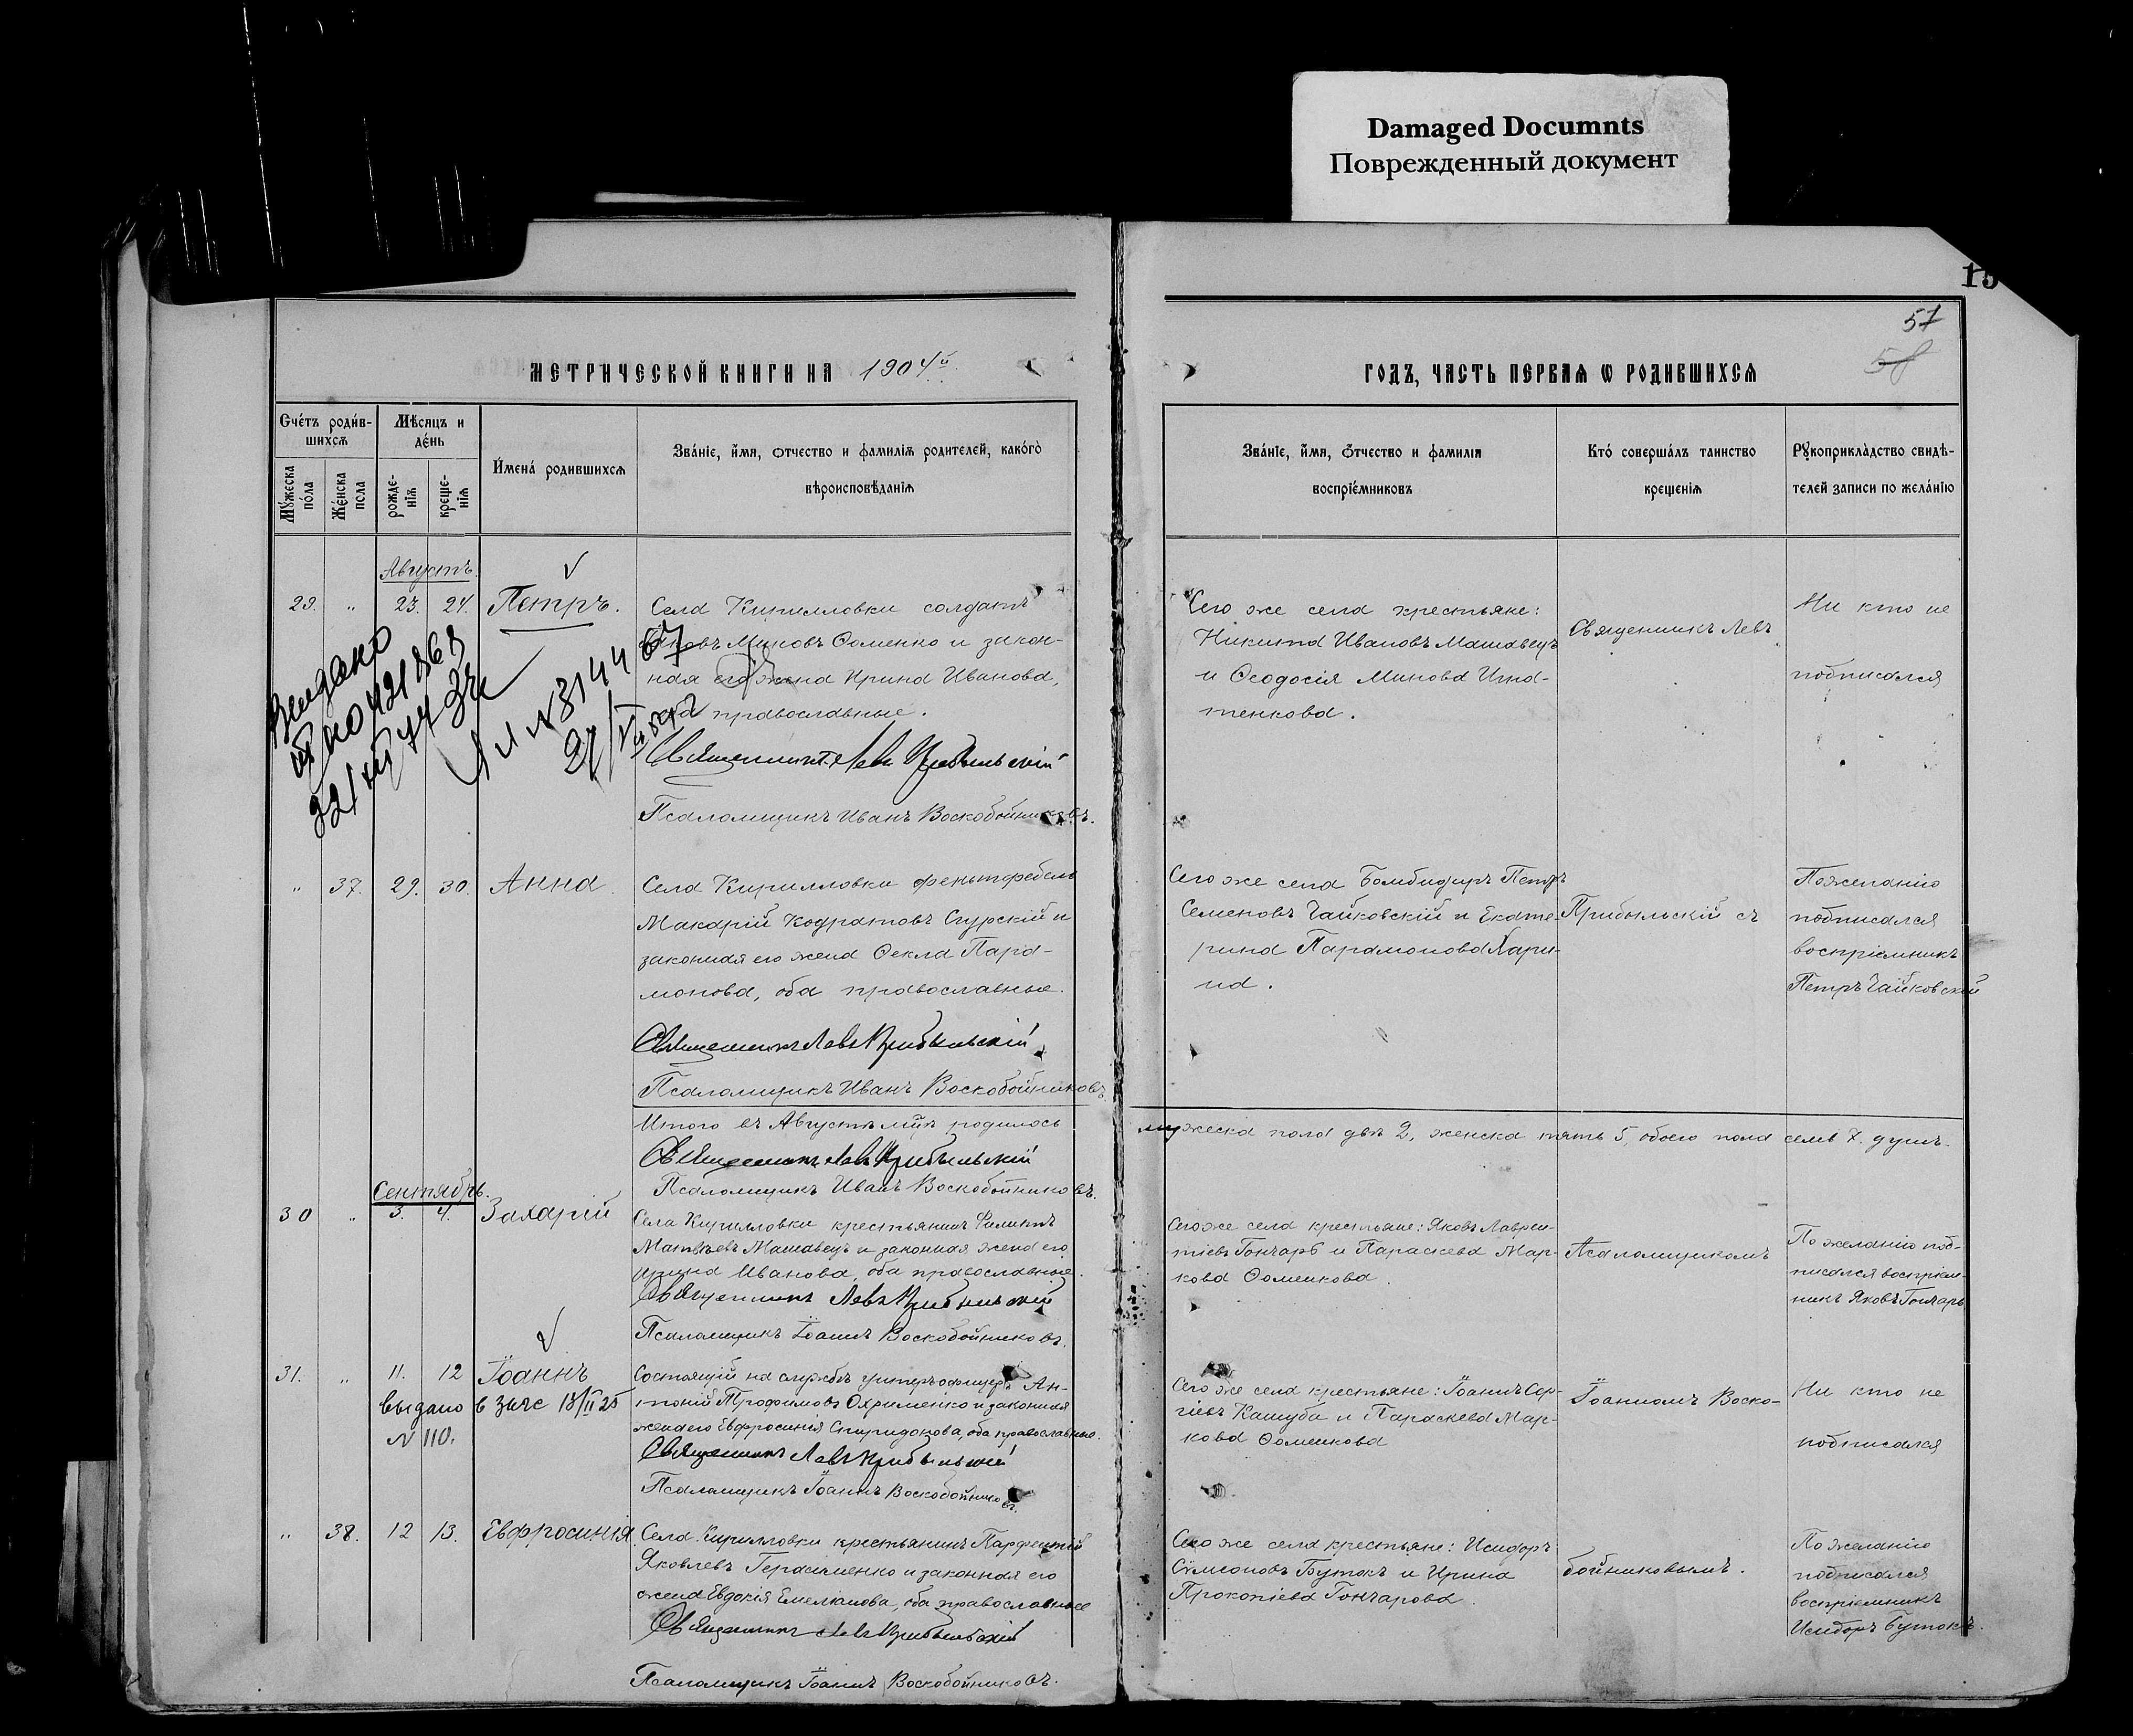 Damaged Documnts
Поврежденный документ
15
57
58
МЕТРИЧЕСКОЙ КНИГИ НА 1904й
ГОДЪ, ЧАСТЬ ПЕРВАѦ Ѡ РОДИВШИХСѦ
Счéтъ родúв-
шихсѧ
Мѣсяцъ и
дéнь
Мꙋ́жеска
пóла
Жéнска
пола
рожде-
нїѧ
креще-
нїѧ
Именá родившихсѧ
Звáнїе, имя, отчество и фамилїѧ родителей, какóгò
вѣроисповѣданїѧ
Звáнїе, имя, отчество и фамилїя
воспрїéмниковъ
Ктó совершáлъ таинство
крещенїѧ
Рꙋкоприклàдство свидѣ-
телей записи по желáнїю
Августъ.
29. " 23. 24. Петръ.
Села Кирилловки солдатъ
Мировъ Фоменко и закон-
ная его жена Ирина Иванова,
православные.
Священникъ Левъ Прибыльскій
Псаломщикъ Иванъ Воскобойниковъ.
Сего же села крестьяне:
Никита Ивановъ Машавецъ
и Ѳеодосія Минова Игна-
тенкова.
Священникъ Левъ
Ни кто не
подписался
Видано
" 37. 29. 30. Анна.
Села Кирилловки фельтфебель
Макарій Кодратовъ Сгурскій и
законная его жена Ѳекла Пара-
монова, оба православные.
Священникъ Левъ Прибыльскій
Псаломщикъ Иванъ Воскобойниковъ.
Сего же села Бомбидиръ Петръ
Семеновъ Чайковскій и Екате-
рина Парамонова Хари-
на.
Прибыльскій съ
По желанію
подписался
воспріемникъ
Петръ Чайковскій
Итого въ Августѣ м-цѣ родилось мужеска пола двѣ 2, женска пять 5, обоего пола семь 7. душъ.
Священникъ Левъ Прибыльскій
Псаломщикъ Иванъ Воскобойниковъ.
Сентябрь.
30 " 3. 4. Захарій
Села Кирилловки крестьянинъ Филиппъ
Матвѣевъ Машавецъ и законная жена его
Ирина Иванова, оба православные.
Священникъ Левъ Прибыльскій
Псаломщикъ Іоаннъ Воскобойниковъ.
Сего же села крестьяне: Яковъ Лаврен-
тіевъ Гончаръ и Параскева Мар-
кова Фоменкова.
Псаломщикомъ
По желанію под-
писался воспріем-
никъ Яковъ Гончаръ
31. " 11. 12 Іоаннъ
Выдано в загсе 18/II 25
N 110.
Состоящій на службѣ унтеръ офицеръ Ан-
тоній Трофимовъ Охрименко и законная
жена его Евфросинія Спиридонова, оба православные.
Священникъ Левъ Прибыльскій
Псаломщикъ Іоаннъ Воскобойниковъ.
Сего же села крестьяне: Іоаннъ Сер-
гіевъ Кашуба и Параскева Мар-
кова Фоменкова
Іоанномъ Воско-
Ни кто не
подписался
" 38. 12 13. Евфросинія
Села Кирилловки крестьянинъ Парфентій
Яковлевъ Герасименко и законная его
жена Евдокія Емеліанова, оба православные
Священникъ Левъ Прибыльскій
Псаломщикъ Іоаннъ Воскобойниковъ.
Сего же села крестьяне: Исидоръ
Симеоновъ Бутокъ и Ирина
Прокопіева Гончарова.
бойниковымъ.
По желанію
подписался
воспріемникъ
Исидоръ Бутокъ.